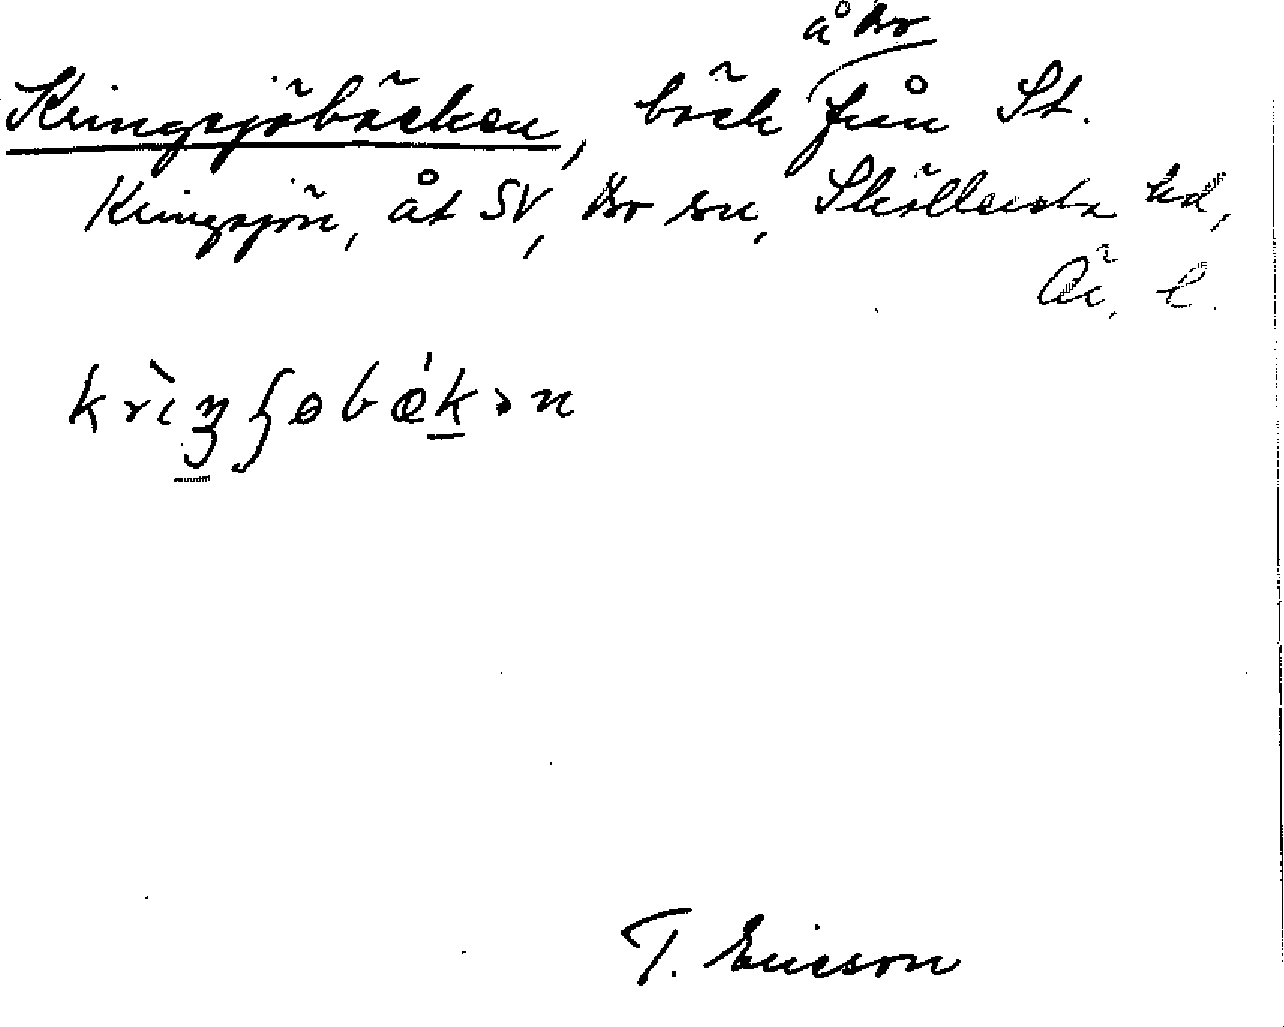 å Bo
Kringsjöbäcken, bäck från St.
Kringsjön, åt SV, Bo sn, Sköllersta hd,
Ä. l.
krìŋʂɵbǽkən
T. Ericson